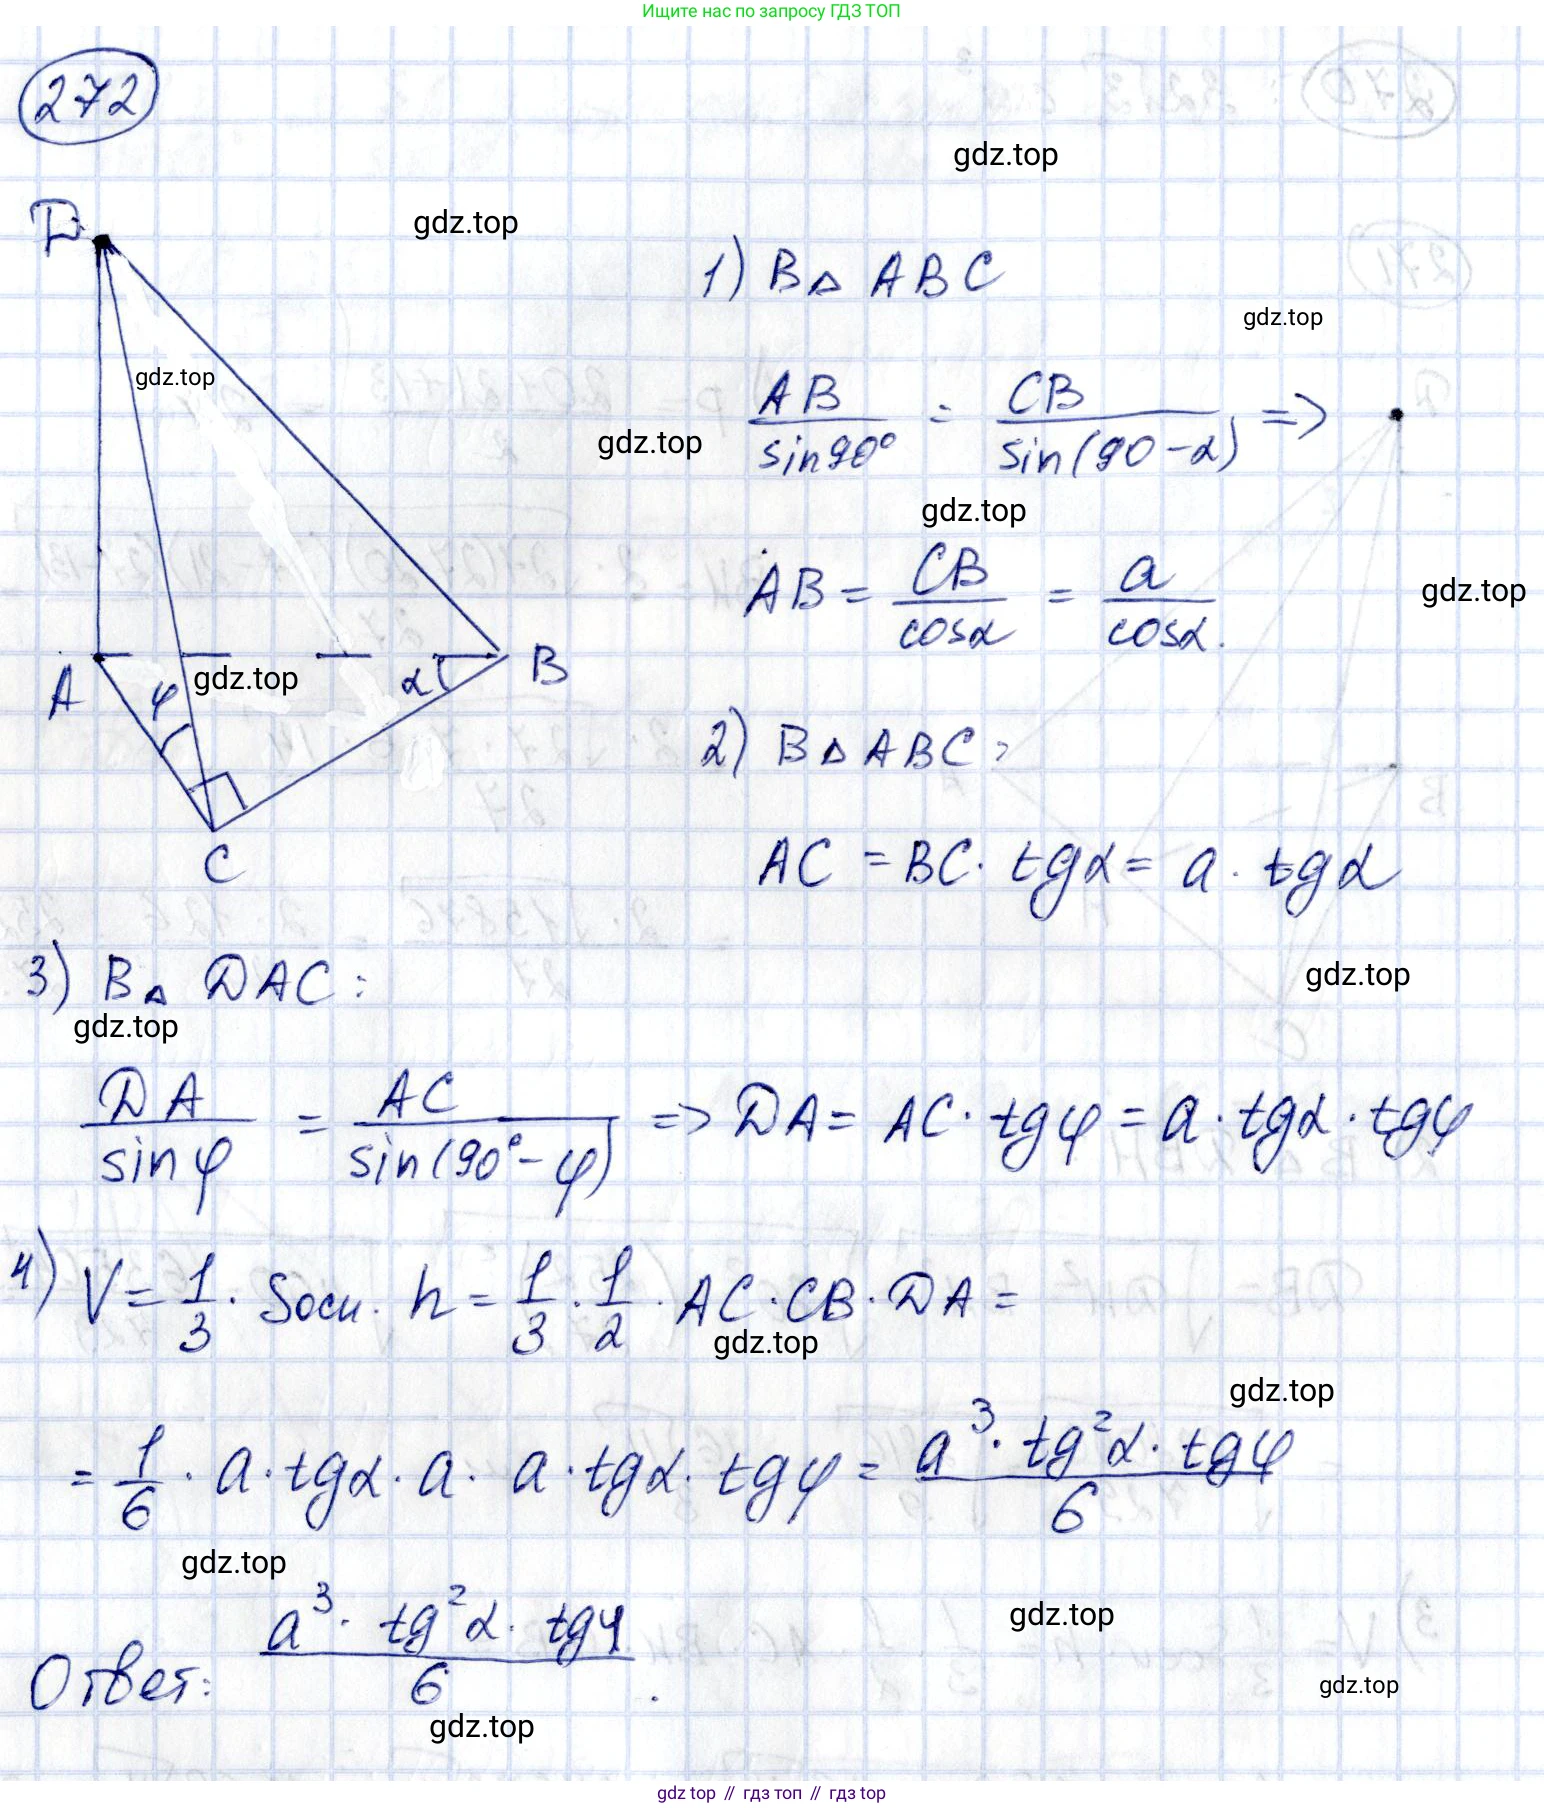 Ищите нас по запросу ГДЗ ТОП
272
gdz.top
gdz.top
D
1) В △ ABC
gdz.top
gdz.top
AB/sin90° = CB/sin(90-α) =>
gdz.top
gdz.top
AB = CB/cosα = a/cosα.
gdz.top
A φ gdz.top α B
2) В △ ABC:
C
AC = BC · tgα = a · tgα
3) В △ DAC:
gdz.top
gdz.top
DA/sinφ = AC/sin(90°-φ) => DA = AC · tgφ = a · tgα · tgφ
4) V = 1/3 · Sосн · h = 1/3 · 1/2 · AC · CB · DA =
gdz.top
gdz.top
= 1/6 · a · tgα · a · a · tgα · tgφ = a³ · tg²α · tgφ/6
gdz.top
gdz.top
Ответ: a³ · tg²α · tgφ/6.
gdz.top
gdz.top
gdz top // гдз топ // гдз top